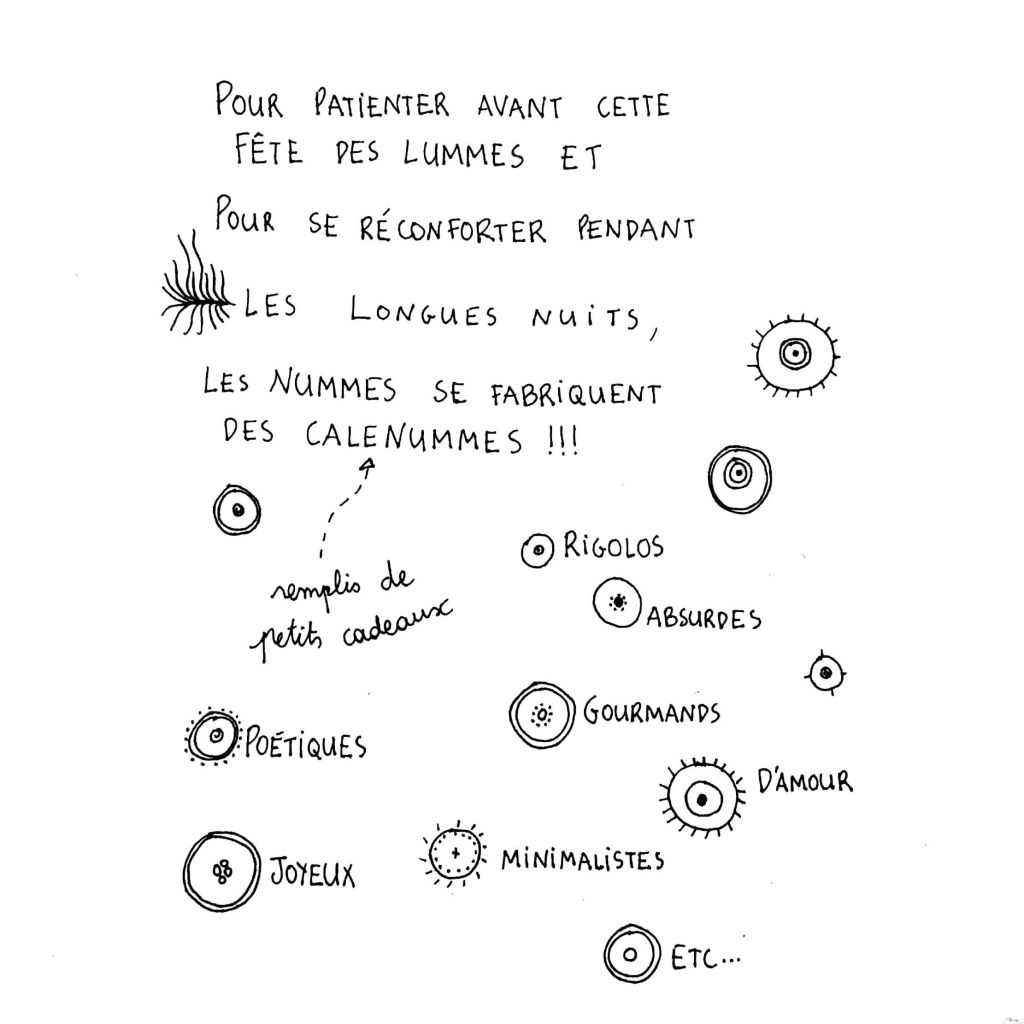 POUR PATIENTER AVANT CETTE
FÊTE DES LUMMES ET
POUR SE RÉCONFORTER PENDANT
LES LONGUES NUITS,
LES NUMMES SE FABRIQUENT
DES CALENUMMES !!!
remplis de
petits cadeaux
RIGOLOS
ABSURDES
GOURMANDS
POÉTIQUES
D'AMOUR
JOYEUX
MINIMALISTES
ETC...